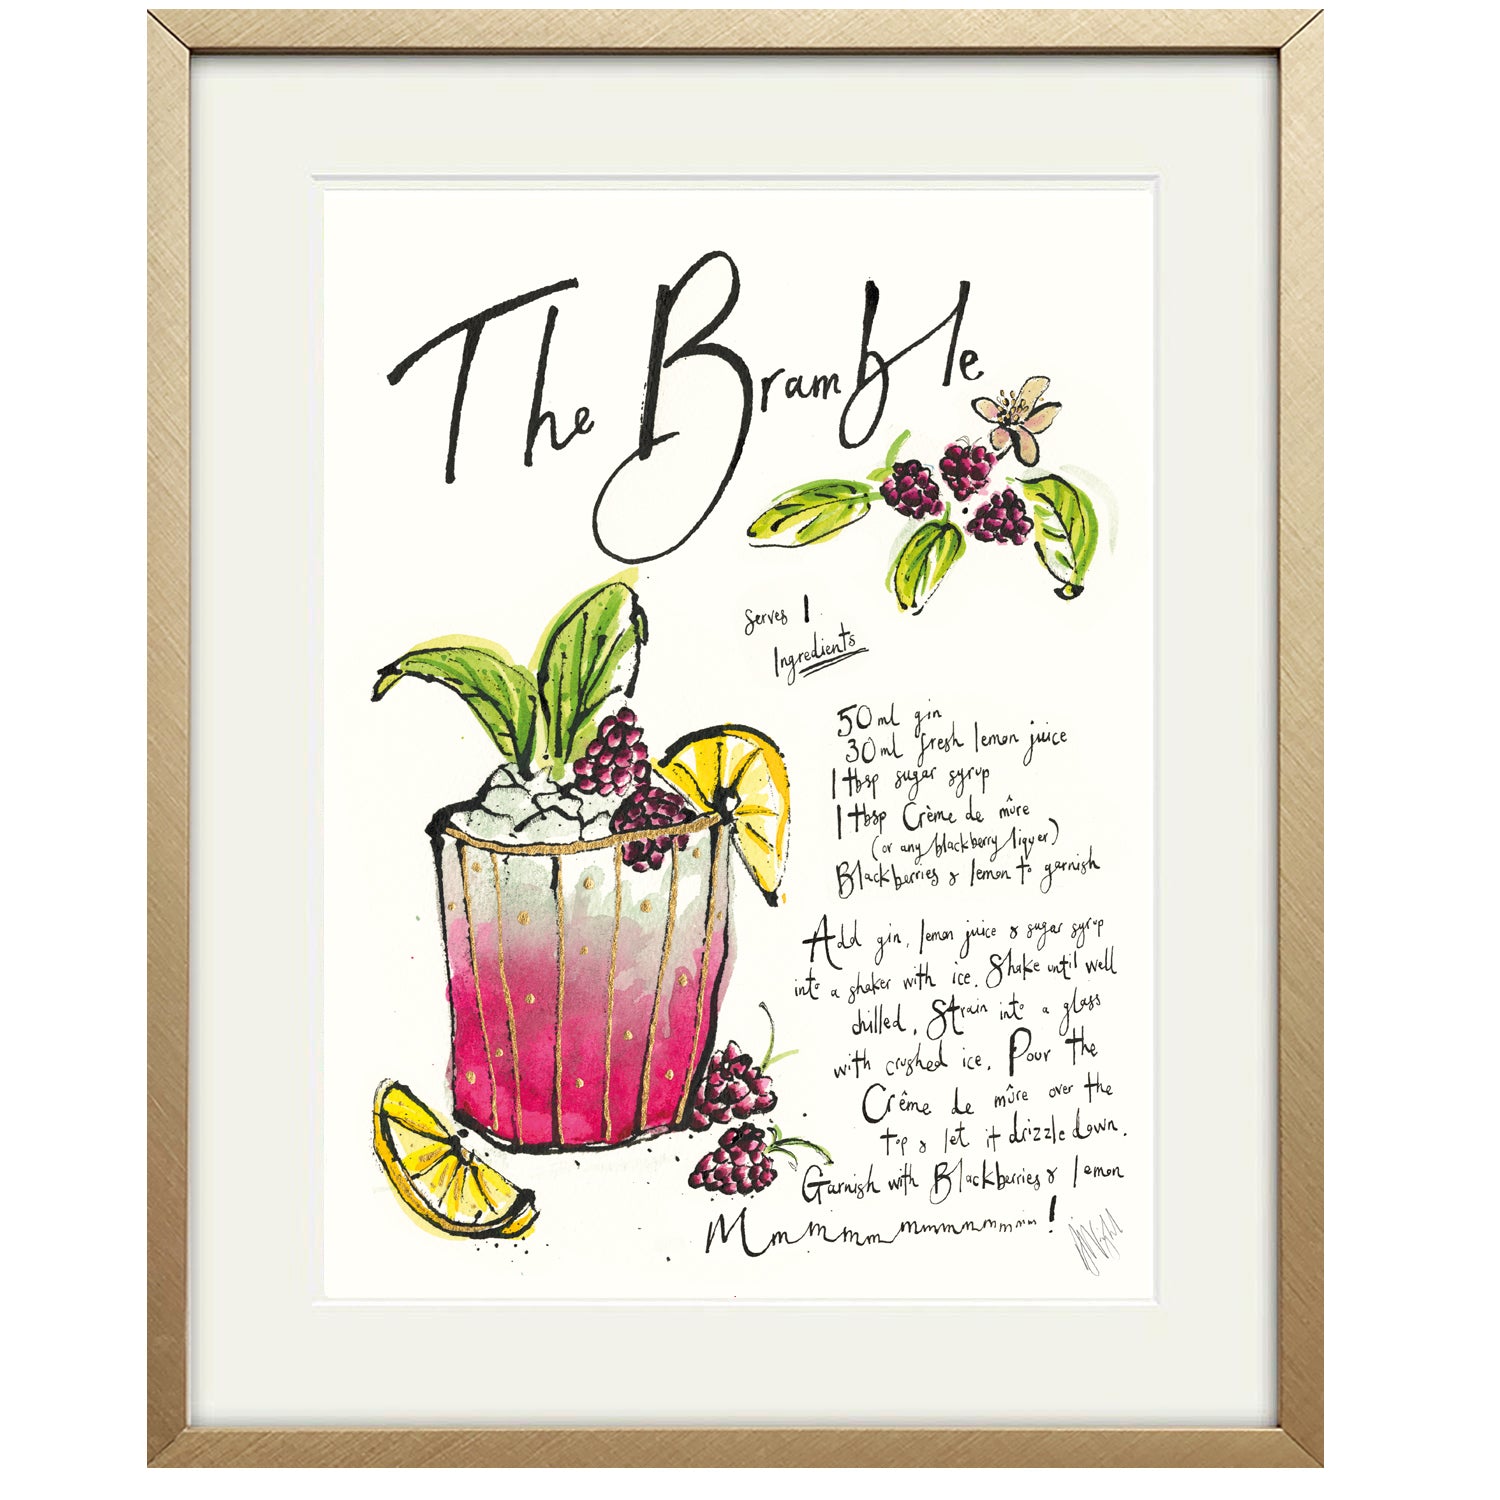 The Bramble
Serves 1
Ingredients
50ml gin
30ml fresh lemon juice
1 tbsp sugar syrup
1 tbsp Crème de mûre
(or any blackberry liqyer)
Blackberries & lemon to garnish
Add gin, lemon juice & sugar syrup
into a shaker with ice. Shake until well
chilled. Strain into a glass
with crushed ice. Pour the
Crême de mûre over the
top & let it drizzle down.
Garnish with Blackberries & lemon
Mmmmmmmmmmmmm!